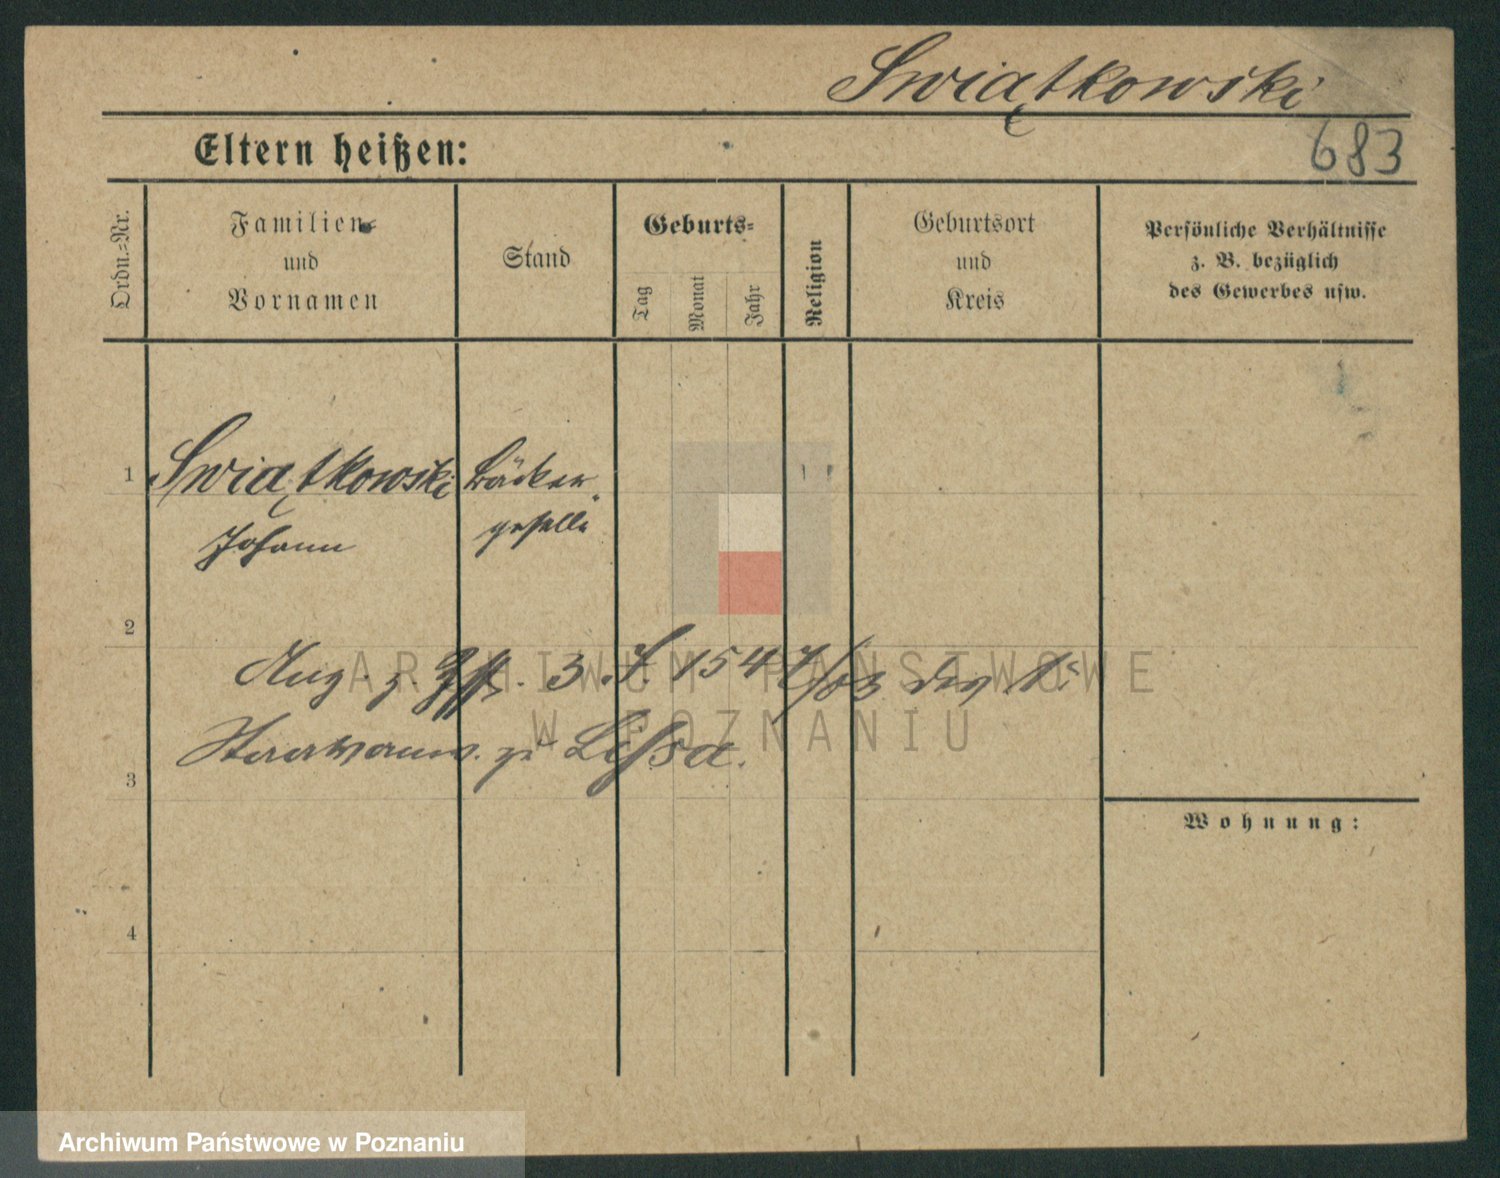 Swiątkowski
683
Eltern heißen:
Ordn.=Nr.
Familien=
und
Vornamen
Stand
Geburts=
Tag
Monat
Jahr
Religion
Geburtsort
und
Kreis
Persönliche Verhältnisse
z. B. bezüglich
des Gewerbes usw.
1
Swiątkowski
Bäcker
Johann
geselle
2
3. J. 154
zu Lissa.
3
Wohnung:
4
ARCHIWUM PAŃSTWOWE
W POZNANIU
Archiwum Państwowe w Poznaniu